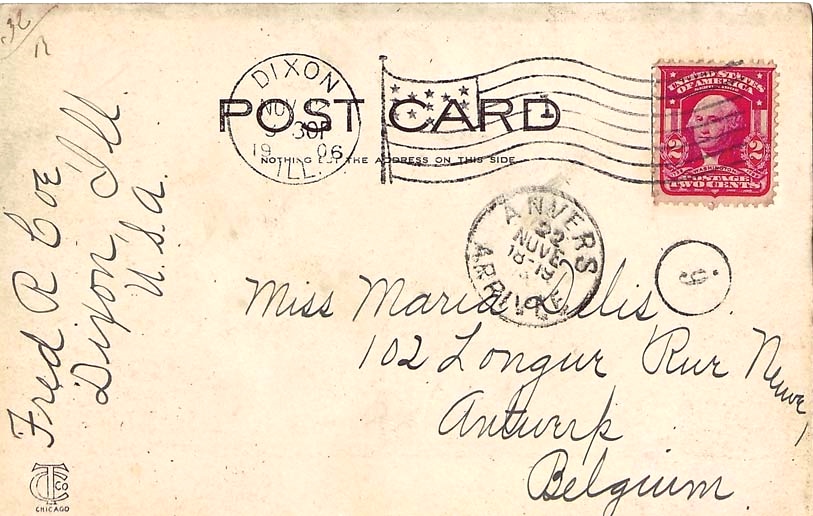 32
DIXON
NOV
30P
19 06
ILL.
POST CARD
NOTHING BUT THE ADDRESS ON THIS SIDE
1
UNITED STATES
OF AMERICA
2 2
WASHINGTON
POSTAGE
TWO CENTS
ANVERS
22
NOVE
18-19
ARRIVEE
9
Miss Maria
102 Longue Rue Neuve,
Antwerp
Belgium.
Fred R Coe
Dixon Ill
U.S.A.
CO
CHICAGO